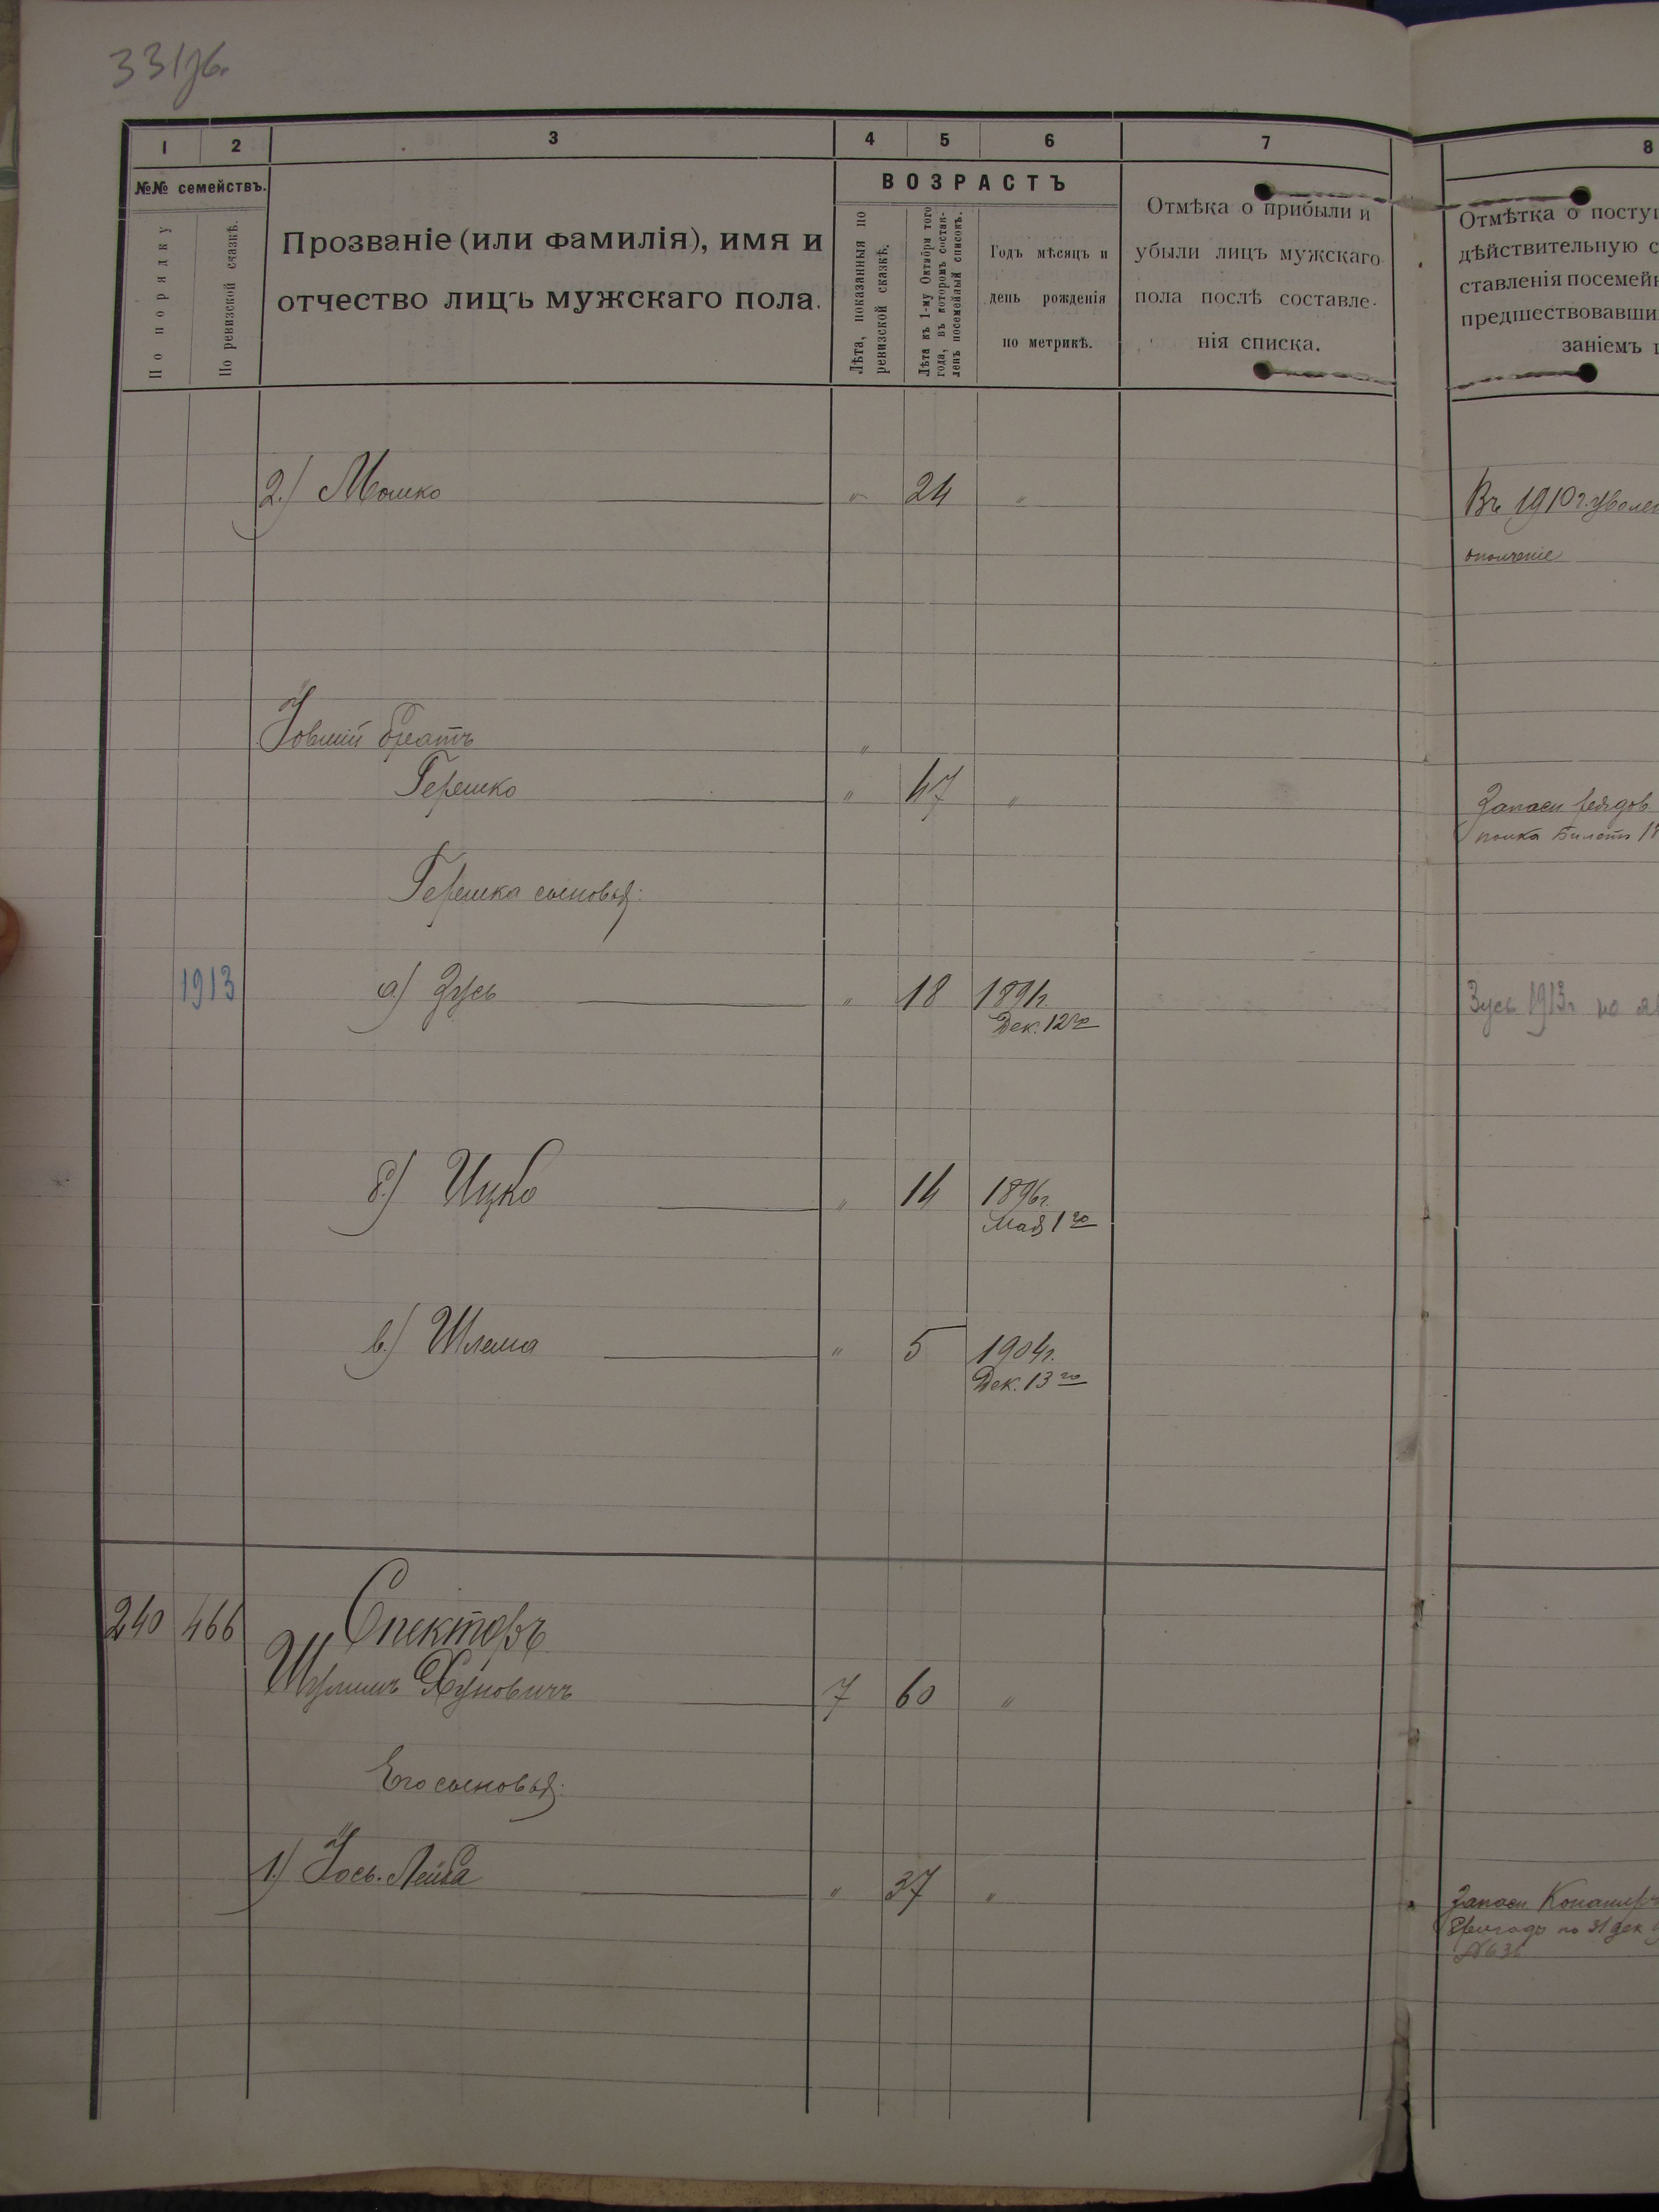 331об.
1 2 3 4 5 6 7 8
№№ семействъ.
По порядку
По ревизской сказкѣ.
Прозваніе (или фамилія), имя и
отчество лицъ мужскаго пола.
ВОЗРАСТЪ
Лѣта, показанныя по
ревизской сказкѣ.
Лѣта къ 1-му Октября того
года, въ которомъ состав-
ленъ посемейный списокъ.
Годъ мѣсяцъ и
день рожденія
по метрикѣ.
Отмѣка о прибыли и
убыли лицъ мужскаго
пола послѣ составле-
нія списка.
Отмѣтка о посту
дѣйствительную с
ставленія посемей
предшествовавши
заніемъ
2.) Мошко " 24 "
Въ 1910 г. уволен
ополченіе
братъ "
Гершко " 47 "
Запасн рядов
полка Билетъ 18
Гершка сыновья:
1913 а) Зусь " 18 1891г.
Дек. 12го
Зусь 1913г. по
б.) Ицко " 14 1896г.
Мая 1го
в.) Шлема " 5 1904г.
Дек. 13го
240 466 Спекторъ
Шулимъ Хуновичъ 7 60 "
Его сыновья:
1.) Іось-Лейба " 37 "
Запасн.
по 31 дек
№ 636